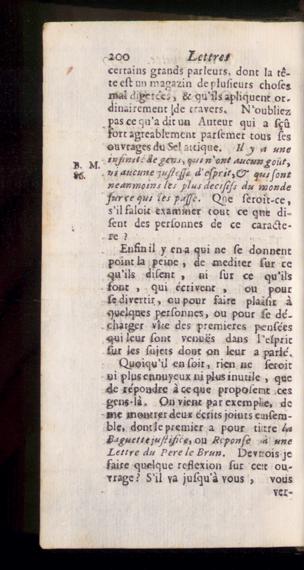 200 Lettres
certains grands parleurs, dont la tê-
te est un magazin de plusieurs choses
mal digerées, & qu'ils apliquent or-
dinairement de travers. N'oubliez
pas ce qu'a dit un Auteur qui a sçû
fort agreablement parsemer tous ses
ouvrages du Sel attique. Il y a une
infinité de gens, qui n'ont aucun goût,
B. M.
86.
ni aucune justesse d'esprit, & qui sont
neanmoins les plus decisifs du monde
sur ce qui se passe. Que seroit-ce,
s'il faloit examiner tout ce que di-
sent des personnes de ce caracte-
re ?
Enfin il y en a qui ne se donnent
point la peine, de mediter sur ce
qu'ils disent, ni sur ce qu'ils
font, qui écrivent, ou pour
se divertir, ou pour faire plaisir à
quelques personnes, ou pour se dé-
charger vîte des premieres pensées
qui leur sont venuës dans l'esprit
sur les sujets dont on leur a parlé.
Quoiqu'il en soit, rien ne seroit
ni plus ennuyeux ni plus inutile, que
de répondre à ce que proposent ces
gens-là. On vient par exemple, de
me montrer deux écrits joints ensem-
ble, dont le premier a pour titre la
Baguette justifiée, ou Réponse à une
Lettre du Pere le Brun. Devrois je
faire quelque reflexion sur cet ou-
vrage? S'il va jusqu'à vous, vous
ver-